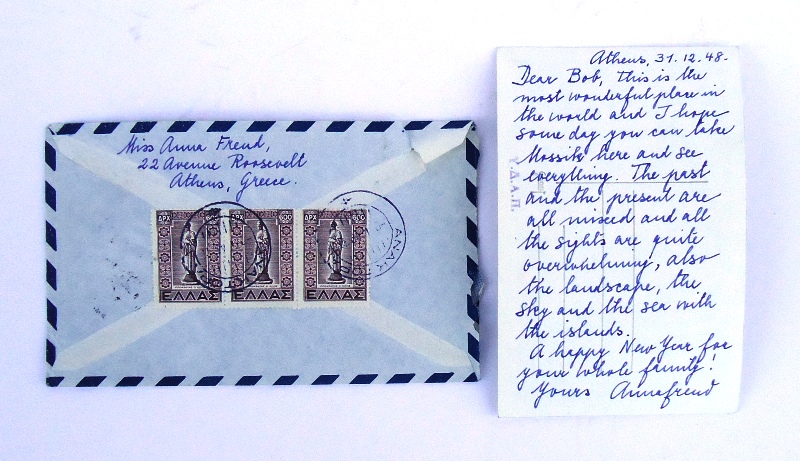 Miss Anna Freud,
22 Avenue Roosevelt
Athens, Greece.
ΔΡΧ 600
ΔΡΧ 600
ΔΡΧ 600
ΕΛΛΑΣ
ΕΛΛΑΣ
ΕΛΛΑΣ
Athens, 31.12.48.
Dear Bob, this is the
most wonderful place in
the world and I hope
some day you can take
Mossik here and see
everything. The past
and the present are
all mixed and all
the sights are quite
overwhelming, also
the landscape, the
sky and the sea with
the islands.
A happy New Year for
your whole family!
Yours Annafreud